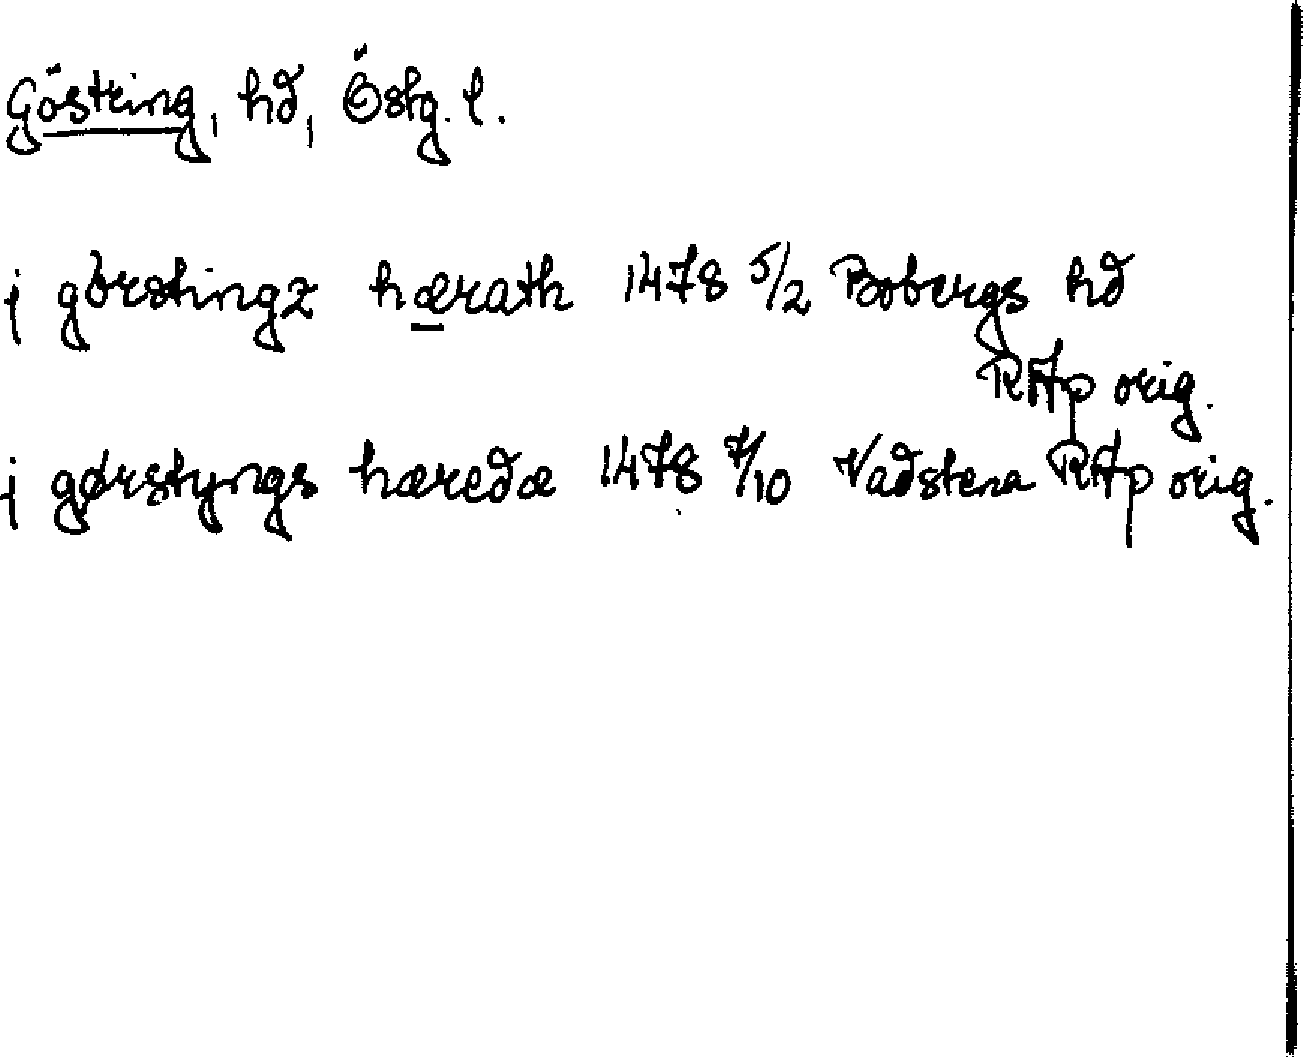 Göstring, hd, Östg. l.
j görstingz hærath 1478 5/2 Bobergs hd
RAp orig.
j gørstyngs hæredæ 1478 7/10 Vadstena RAp orig.